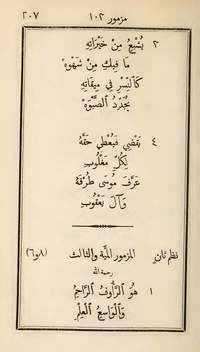 مزمور ١٠٣
٢٠٧
٣ يُشْبِعُ مِنْ خَيْرَاتِهِ
مَا فِيكِ مِنْ شَهْوَهْ
كَالنَّسْرِ فِي مِيقَاتِهِ
يُجَدِّدُ الصَّبْوَهْ
٤ يَقْضِي فَيُعْطِي حَقَّهُ
لِكُلِّ مَغْلُوبِ
عَرَّفَ مُوسَى طُرْقَهُ
وَآلَ يَعْقُوبِ
نظم ثانٍ
المزمور المئة والثالث
(٨و٦)
رحمة الله
١ هُوَ الرَّأُوفُ الرَّاحِمُ
وَالْوَاسِعُ الْحِلْمِ